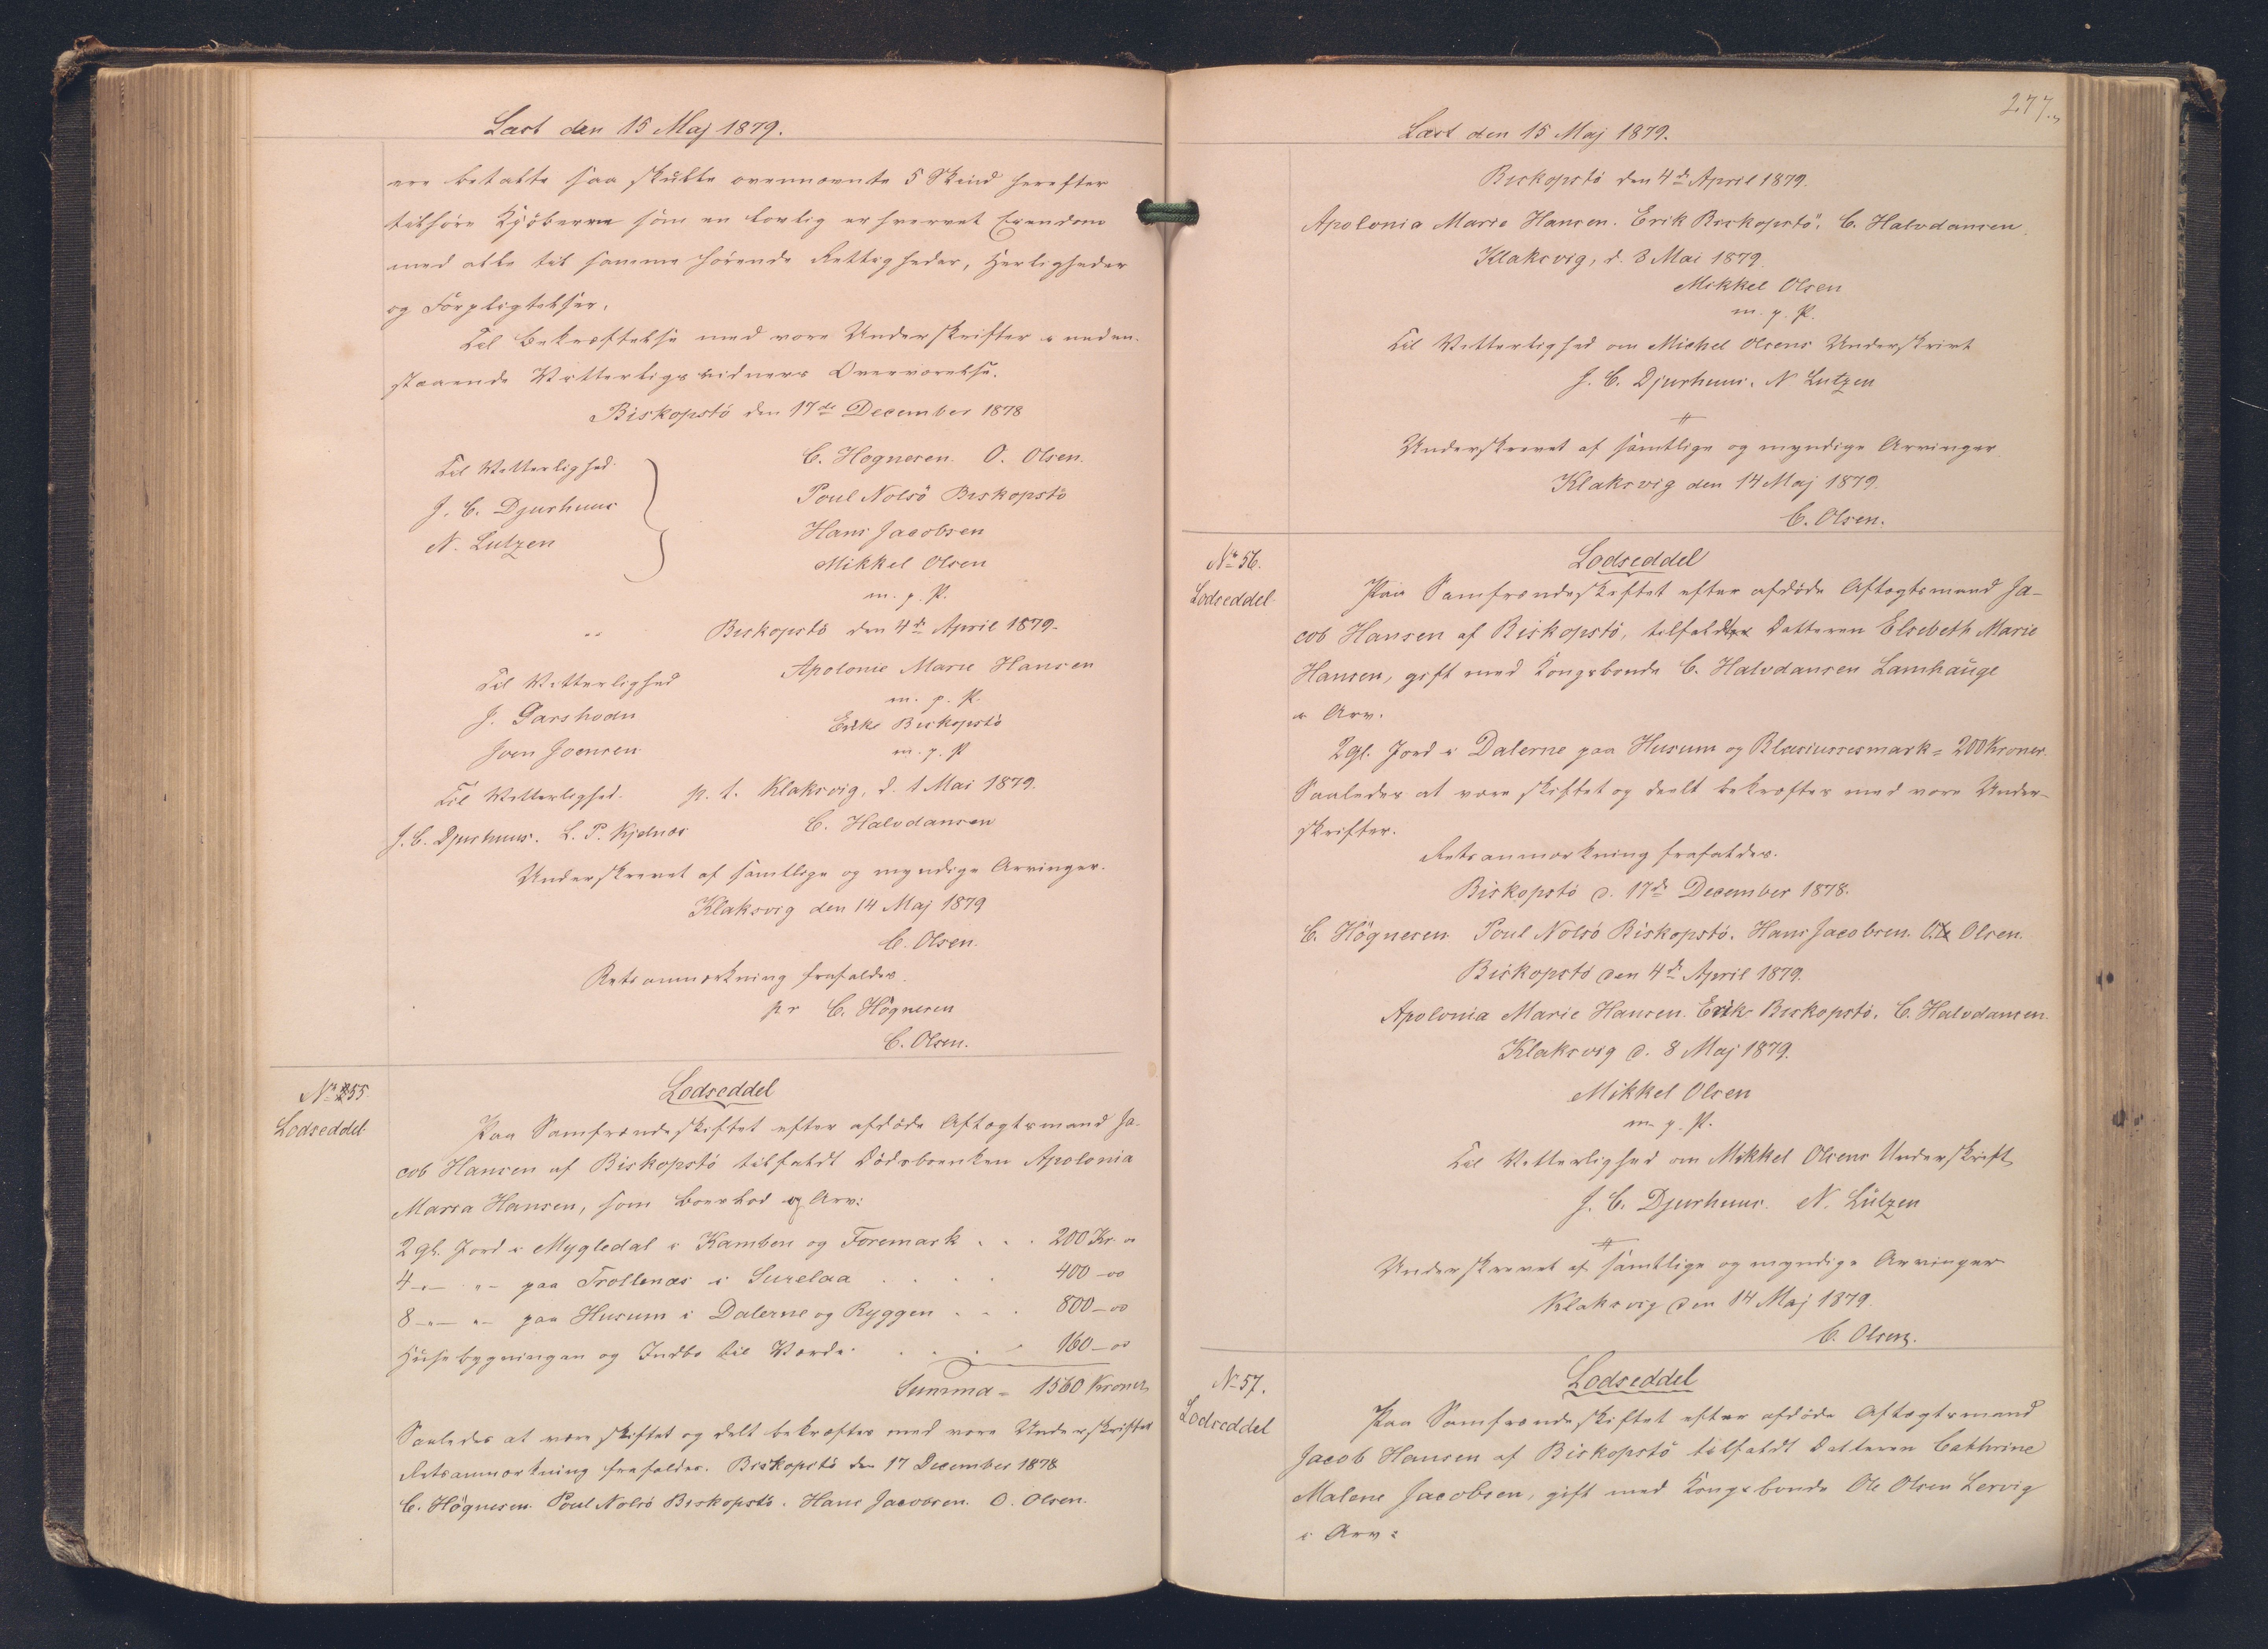 Læst den 15 Maj 1879.
ere betalte saa skulle ovennævnte 5 Skind herefter
tilhøre Kjöberne som en lovlig erhvervet Eiendom
med alle til samme hørende Rettigheder, Herligheder
og Forpligtelser.
Til Bekræftelse med vore Underskrifter i neden-
staaende Vitterligsvidners Overværelse.
Biskopstö den 17de December 1878
Til Vitterlighed.
J. C. Djurhuus
N. Lutzen
C. Högnesen. O. Olsen.
Poul Nolsö Biskopstö
Hans Jacobsen
Mikkel Olsen
m. p. P.
Biskopstö den 4de April 1879.
Til Vitterlighed
J. Garshodn
Joen Joensen
Apolonie Marie Hansen
m. p. P.
Erik Biskopstö
m. p. P
Til Vitterlighed.
J. C. Djurhuus. L. P. Kjølnæs
p. t. Klaksvig, d. 1 Mai 1879.
C. Halvdansen
Underskrevet af samtlige og myndige Arvinger.
Klaksvig den 14 Maj 1879
C. Olsen.
Retsanmærkning frafaldes.
pr C. Högnesen
C. Olsen.
No 55.
Lodseddel.
Lodseddel
Paa Samfrændeskiftet efter afdöde Aftægtsmand Ja-
cob Hansen af Biskopstö tilfaldt Dödsboenken Apolonia
Maria Hansen, som Boeslod og Arv:
2 gl. Jord i Mygledal i Kamben og Foremark . . . 200 Kr. "
4 -"- "- paa Trollenæs i Surelaa . . . . 400 - 00
8 -"- "- paa Husum i Dalerne og Ryggen . . . 800 - 00
Husebygningen og Indbo til Værdi . . . . 160 - 00
Summa = 1560 Kroner
Saaledes at være skiftet og delt bekræftes med vore Underskrifter
Retsanmærkning frafaldes. Biskopstö den 17 December 1878
C. Högnesen. Poul Nolsö Biskopstö. Hans Jacobsen. O. Olsen.
277.
Læst den 15 Maj 1879.
Biskopstö den 4de April 1879.
Apolonia Marie Hansen. Erik Biskopstö. C. Halvdansen.
Klaksvig, d. 8 Mai 1879.
Mikkel Olsen
m. p. P.
Til Vitterlighed om Michel Olsens Underskrivt
J. C. Djurhuus. N Lutzen
Underskrevet af samtlige og myndige Arvinger
Klaksvig den 14 Maj 1879.
C. Olsen.
No 56.
Lodseddel.
Lodseddel
Paa Samfrændeskiftet efter afdöde Aftægtsmand Ja-
cob Hansen af Biskopstö, tilfaldt Datteren Elsebeth Marie
Hansen, gift med Kongsbonde C. Halvdansen Lamhauge
i Arv.
2 gl. Jord i Dalerne paa Husum og Blasiussesmark = 200 Kroner.
Saaledes at være skiftet og deelt bekræftes med vore Under-
skrifter.
Retsanmærkning frafaldes.
Biskopstö d. 17de December 1878.
C. Högnesen. Poul Nolsö Biskopstö. Hans Jacobsen. O. Olsen.
Biskopstö den 4de April 1879.
Apolonia Marie Hansen. Erik Biskopstö. C. Halvdansen.
Klaksvig d. 8 Maj 1879.
Mikkel Olsen
m. p. P.
Til Vitterlighed om Mikkel Olsens Underskrift
J. C. Djurhuus. N. Lützen
Underskrevet af samtlige og myndige Arvinger
Klaksvig den 14 Maj 1879.
C. Olsen.
No 57.
Lodseddel
Lodseddel
Paa Samfrændeskiftet efter afdöde Aftægtsmand
Jacob Hansen af Biskopstö tilfaldt Datteren Cathrine
Malene Jacobsen, gift med Kongsbonde Ole Olsen Lervig
i Arv: